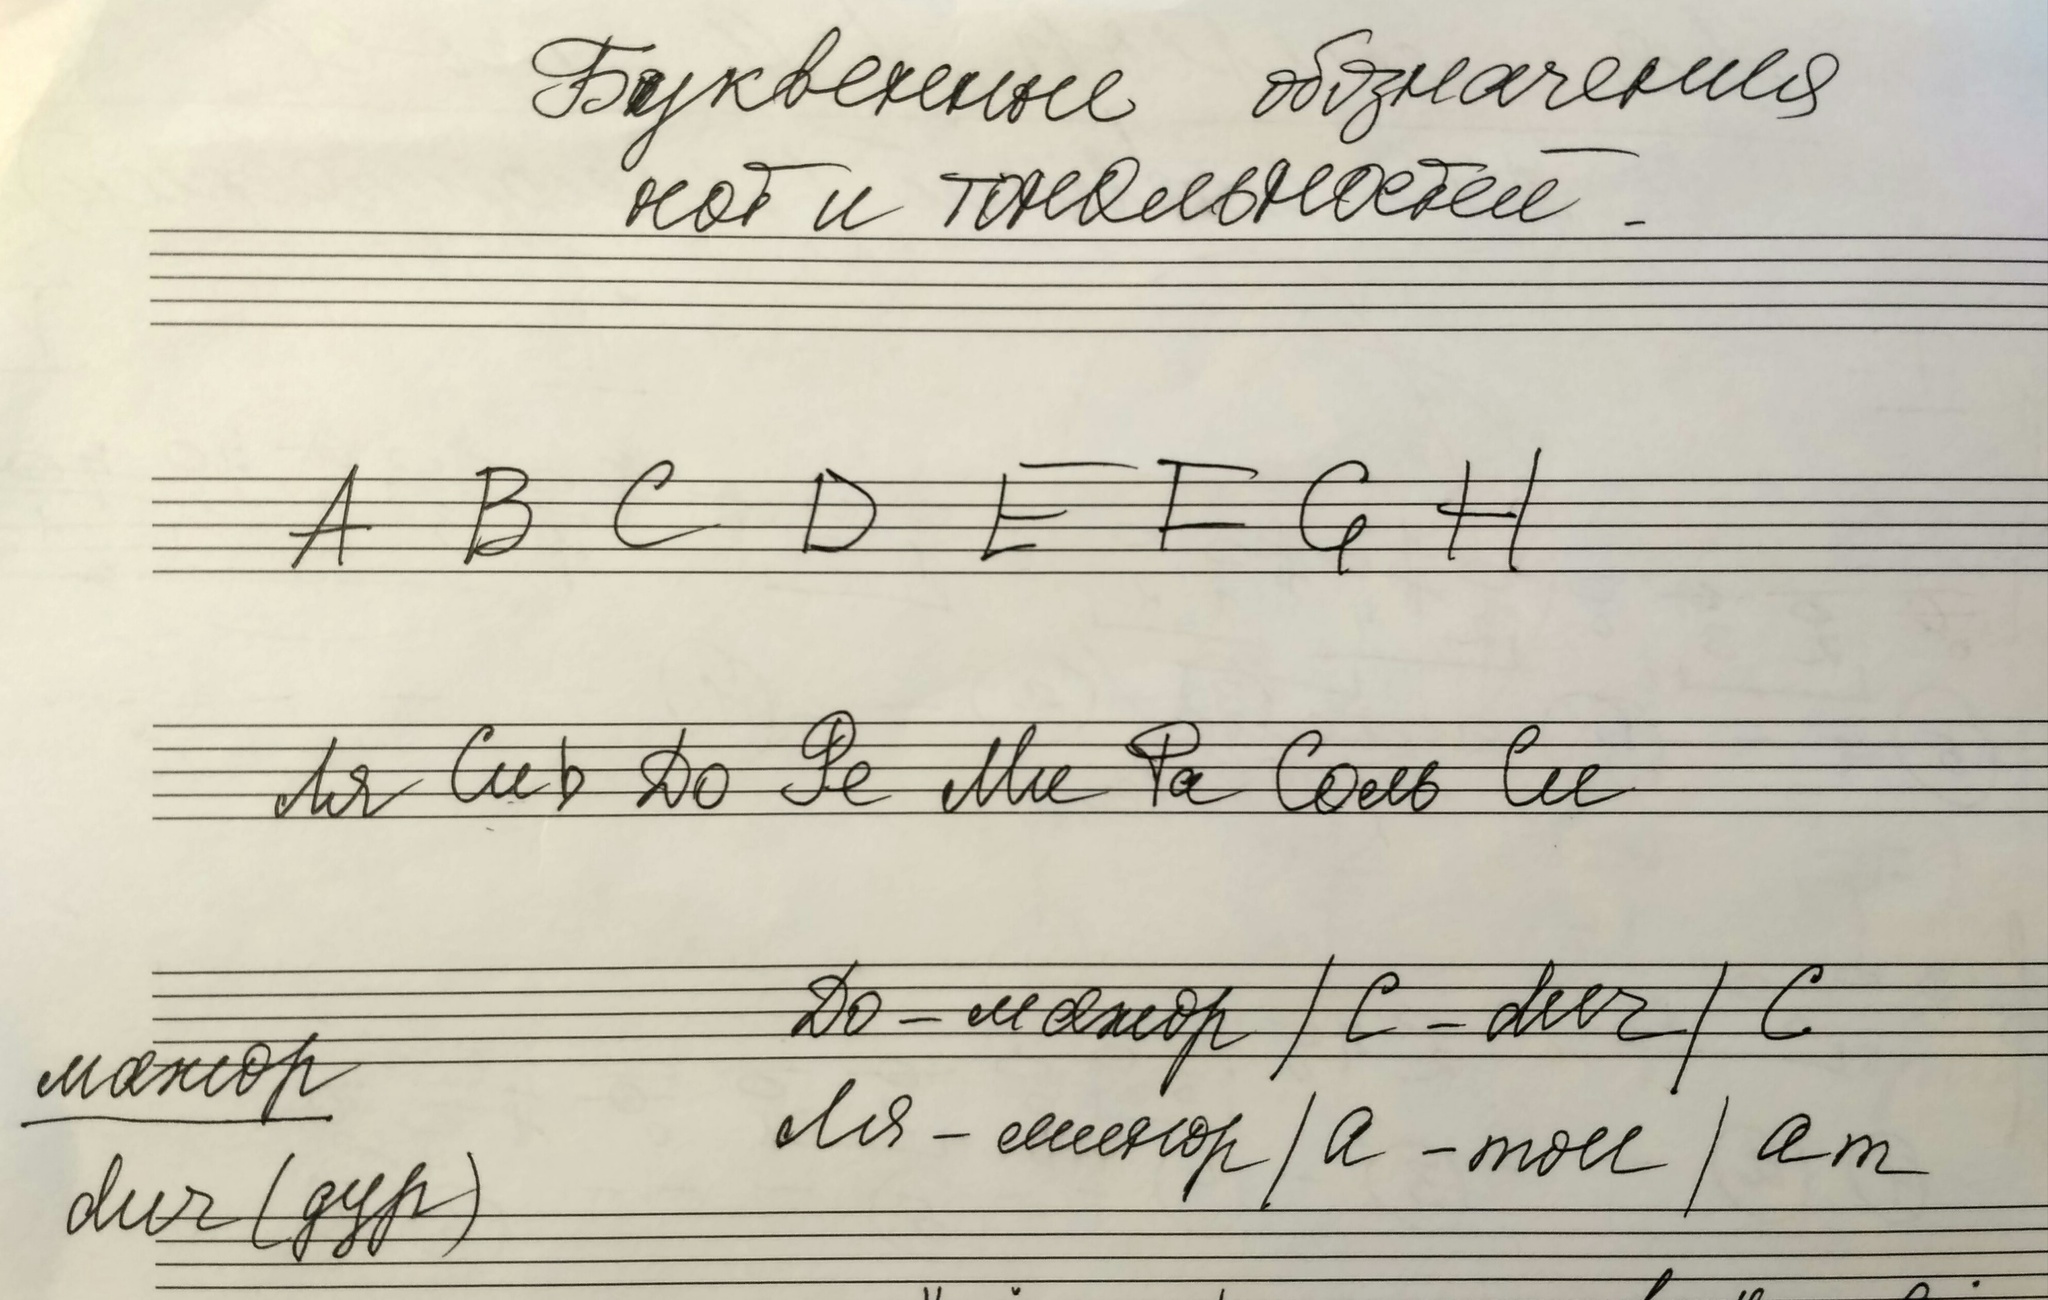 Буквенные обозначения
нот и тональностей.
A B C D E F G H
Ля Сиb До Ре Ми Фа Соль Си
До-мажор / C-dur / C
мажор
Ля-минор / a-moll / am
dur (дур)